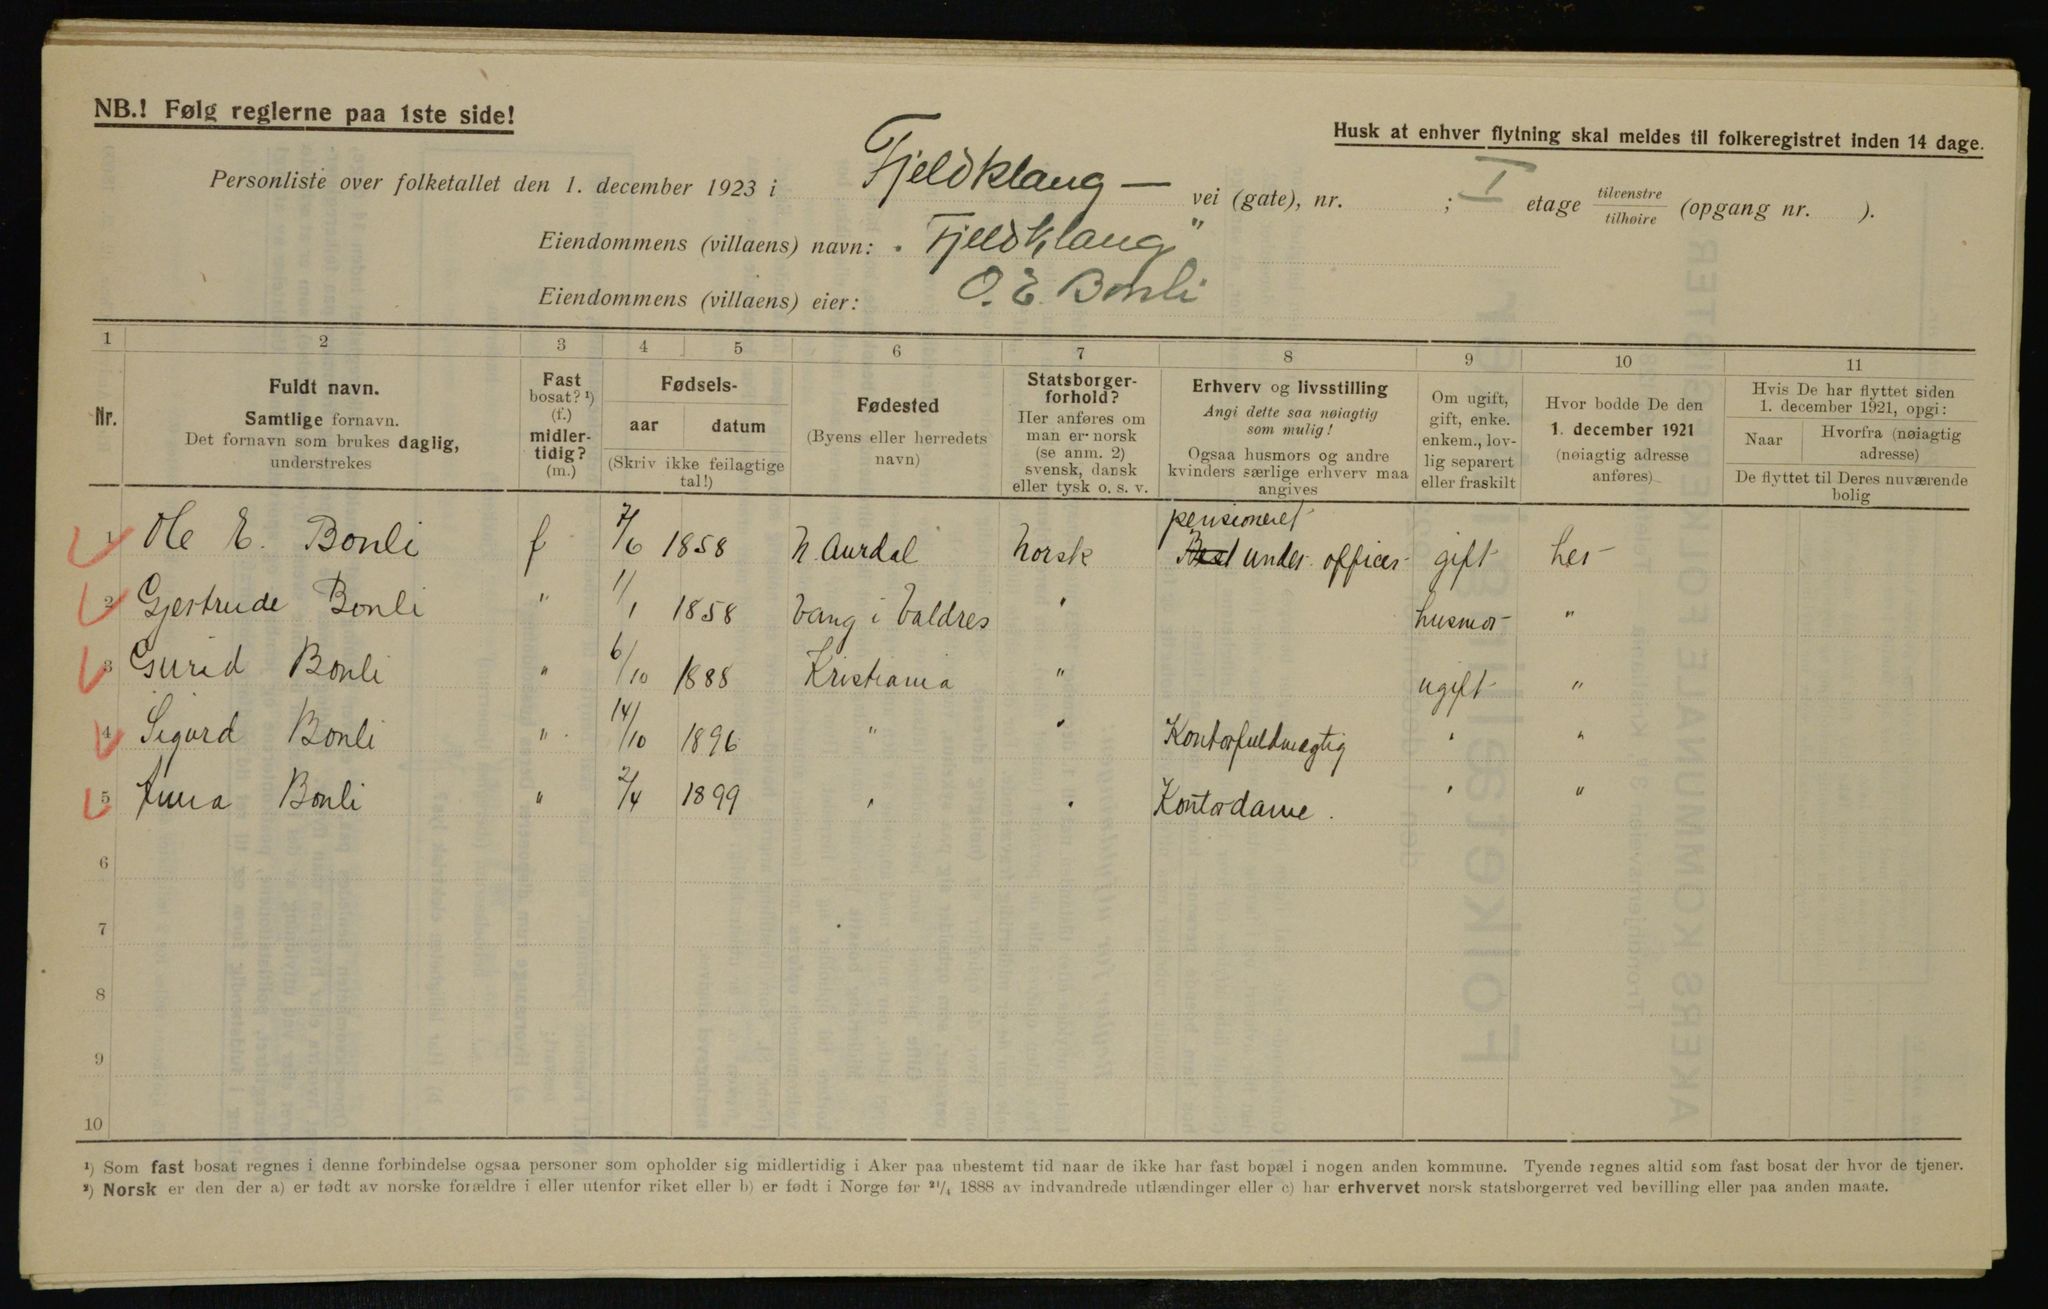 NB.! Følg reglerne paa 1ste side!
Husk at enhver flytning skal meldes til folkeregistret inden 14 dage.
Personliste over folketallet den 1. december 1923 i Fjeldklang — vei (gate), nr. ; I etage tilvenstre tilhøire (opgang nr. ).
Eiendommens (villaens) navn: „Fjeldklang"
Eiendommens (villaens) eier: O. E. Bonli
1 2 3 4 5 6 7 8 9 10 11
Nr.
Fuldt navn.
Samtlige fornavn.
Det fornavn som brukes daglig,
understrekes
Fast
bosat? ¹)
(f.)
midler-
tidig?
(m.)
Fødsels-
aar datum
(Skriv ikke feilagtige
tal!)
Fødested
(Byens eller herredets
navn)
Statsborger-
forhold?
Her anføres om
man er norsk
(se anm. 2)
svensk, dansk
eller tysk o. s. v.
Erhverv og livsstilling
Angi dette saa nøiagtig
som mulig!
Ogsaa husmors og andre
kvinders særlige erhverv maa
angives
Om ugift,
gift, enke.
enkem., lov-
lig separert
eller fraskilt
Hvor bodde De den
1. december 1921
(nøiagtig adresse
anføres)
Hvis De har flyttet siden
1. december 1921, opgi:
Naar Hvorfra (nøiagtig
adresse)
De flyttet til Deres nuværende
bolig
pensioneret
1 Ole E. Bonli f 7/6 1858 N. Aurdal Norsk under officer gift her
2 Gjertrude Bonli " 1/1 1858 Vang i Valdres " husmor "
3 Gurid Bonli " 6/10 1888 Kristiania " ugift "
4 Sigurd Bonli " 14/10 1896 " " Kontorfuldmægtig " "
5 Anna Bonli " 2/4 1899 " " Kontordame. " "
6
7
8
9
10
¹) Som fast bosat regnes i denne forbindelse ogsaa personer som opholder sig midlertidig i Aker paa ubestemt tid naar de ikke har fast bopæl i nogen anden kommune. Tyende regnes altid som fast bosat der hvor de tjener.
²) Norsk er den der a) er født av norske forældre i eller utenfor riket eller b) er født i Norge før ²¹/₄ 1888 av indvandrede utlændinger eller c) har erhvervet norsk statsborgerret ved bevilling eller paa anden maate.